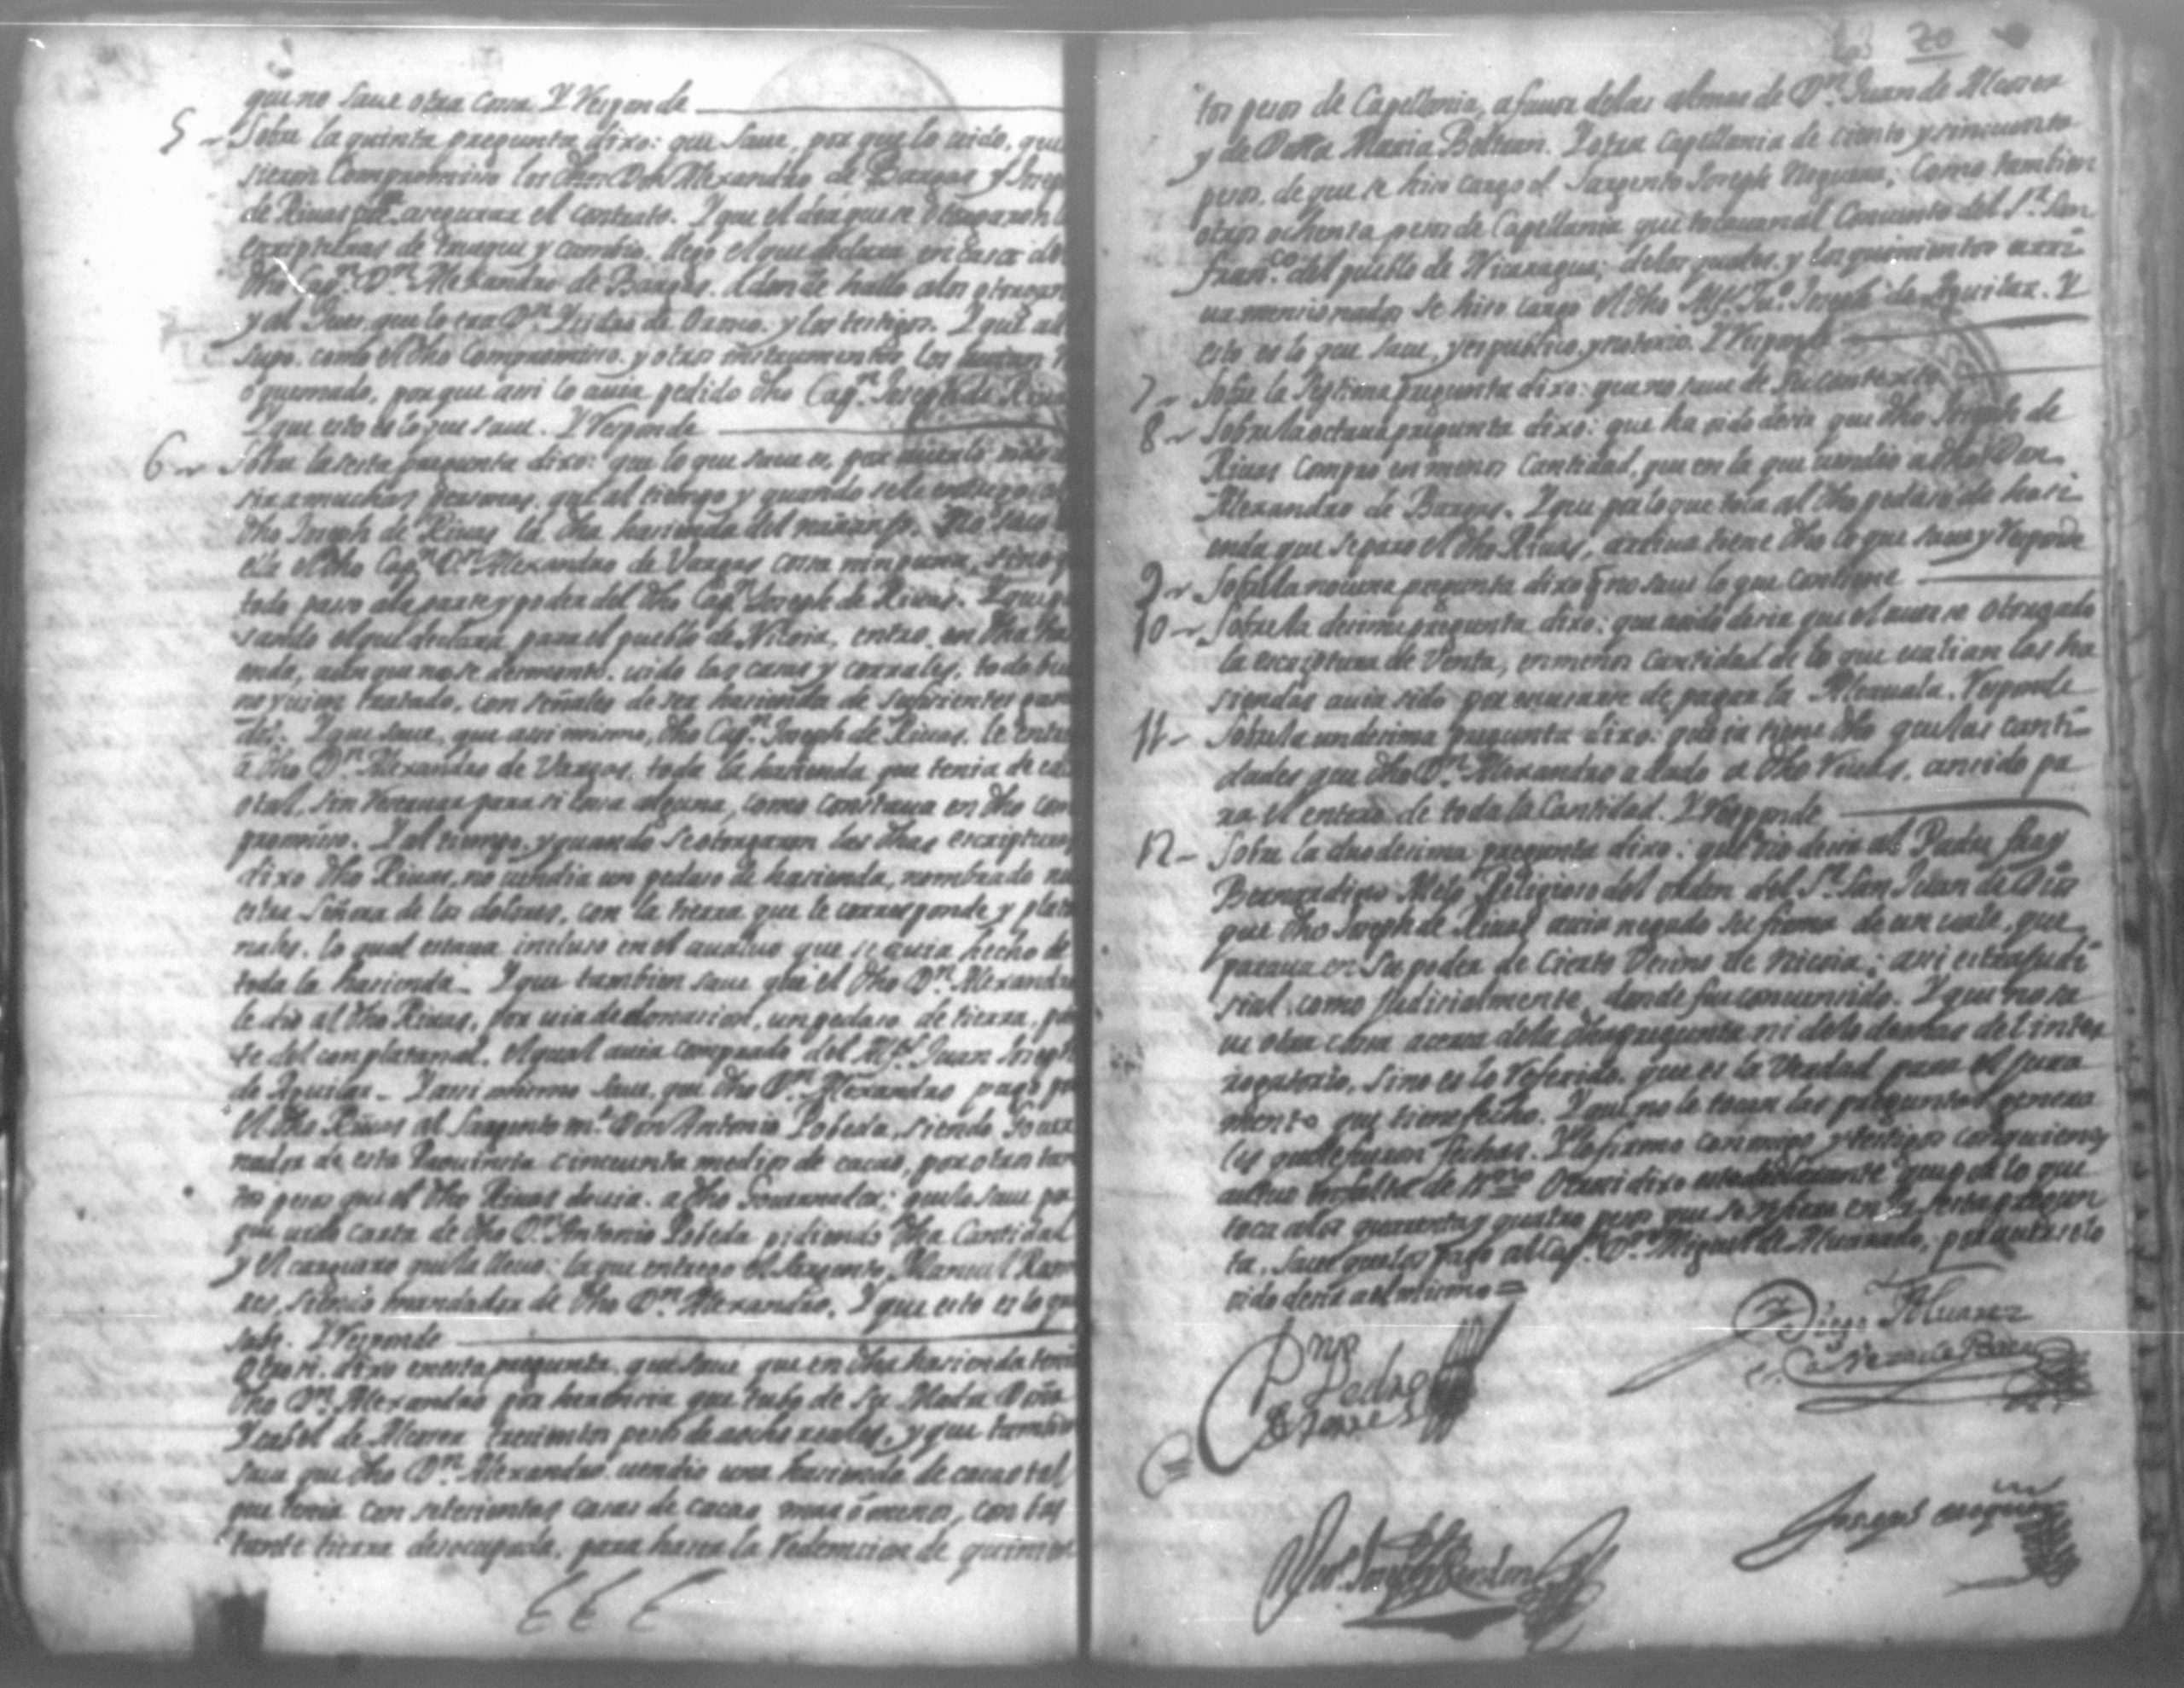 que no saue otra cossa. Y Responde
5 Sobre la quinta pregunta dixo: que saue, por que lo uido, que
sieron Compromiso los dhos Don Alexandro de Bargas y Joseph
de Riuas pa. asegurar el contrato. Y que el dia que se otorgaron l
escripturas de trueque y cambio, llego el que declara en casa del
dho Capn. Dn. Alexandro de Bargas. Adonde hallo a los otorgan
y al Juez, que lo era Dn. de Osorno, y los testigos. Y que al
supo como el dho Compromiso, y otros instrumentos, los
o quemado, porque assi lo auia pedido dho Capn. Joseph de Riua
Y que esto es lo que saue. Y Responde
6 Sobre la sesta pregunta dixo: que lo que saue es, por auerlo oido
sir a muchas personas, que al tiempo y quando se le entrego al
dho Joseph de Riuas la dha hacienda del no saco
ella el dho Capn. Dn. Alexandro de Vargas cossa ninguna, sino q
todo passo a la parte y poder del dho Capn. Joseph de Riuas. Y que pa
sando el que declara, para el pueblo de Nicoia, entro en dha ha
enda, aunque no se desmonto, uido las casas y corrales, todo bue
no y bien tratado, con señales de ser hacienda de suficientes gana
dos. Y que saue, que assi mismo, dho Capn. Joseph de Riuas, le entre
a dho Dn. Alexandro de Vargas, toda la hacienda que tenia de ca
otal, sin reseruar para si cosa alguna, como constaua en dho com
promiso. Y al tiempo, y quando se otorgaron las dhas escripturas
dixo dho Riuas, no uendia un pedaso de hacienda, nombrado nu
estra Señora de los dolores, con la tierra que le corresponde y plata
nales, lo qual estaua incluso en el aualuo que se auia hecho de
toda la hacienda. Y que tambien saue que el dho Dn. Alexandro
le dio al dho Riuas, por uia de donacion, un pedaso de tierra, par
te del con platanal, el qual auia comprado del Juan Joseph
de Aguilar. Y assi mismo saue, que dho Dn. Alexandro pago por
el dho Riuas al Sargento mr. Don Antonio Pobeda, siendo Gouer
nador de esta Prouincia cincuenta medios de cacao, por otros tan
tos pesos que el dho Riuas deuia a dho Gouernador; que lo saue por
que uido carta de dho Dn. Antonio Pobeda pidiendo dha Cantidad
y el que la lleuo; la que entrego el Sargento Manuel Ram
res, siendo mandador de dho Dn. Alexandro. Y que esto es lo que
saue. Y Responde
Otrosi, dixo en esta pregunta, que saue que en dha hacienda tenia
dho Dn. Alexandro por herencia que tubo de su Madre Doña
Ysabel de Alcozer trecientos pesos de a ocho reales, y que tambien
saue que dho Dn. Alexandro uendio una hacienda de cacaotal
que tenia con setecientas casas de cacao mas o menos, con bas
tante tierra desocupada, para hacer la Redencion de quinien
20
tos pesos de Capellania, a fauor de las almas de Dn. Juan de Alcozer
y de Doña Maria Beltran. Y otra Capellania de ciento y sincuenta
pesos, de que se hiso cargo el Sargento Joseph Noguera; Como tambien
otros ochenta pesos de Capellania que tocauan al Conuento del Sr. San
Franco. del pueblo de Nicaragua; de los quales, y los quinientos arri
ua mencionados se hiso cargo el dho Juo. Joseph de Aguilar. Y
esto es lo que saue, y es publico, y notorio. Y Responde
7 Sobre la septima pregunta dixo: que no saue de su contexto
8 Sobre la octaua pregunta dixo: que ha oido desir que dho Joseph de
Riuas compro en menos cantidad, que en la que uendio a dho Don
Alexandro de Bargas. Y que por lo que toca al dho pedaso de haci
enda que separo el dho Riuas, arriua tiene dho lo que saue y Responde
9 Sobre la nouena pregunta dixo q no saue lo que contiene
10 Sobre la decima pregunta dixo: que a oido desir que el auerse otorgado
la escriptura de Venta, en menos cantidad de lo que ualian las ha
siendas auia sido por escusarse de pagar la Alcauala. Responde
11 Sobre la undecima pregunta dixo: que ia tiene dho que las canti
dades que dho Dn. Alexandro a dado a dho Riuas, an sido pa
ra el entero de toda la Cantidad. Y Responde
12 Sobre la duodecima pregunta dixo: que oio desir al Padre fray
Bernardino Melo Religioso del orden del Sr. San Juan de Dios
que dho Joseph de Riuas auia negado su firma de un uale, que
paraua en su poder de Cierto Vecino de Nicoia; assi extrajudi
cial, como judicialmente, donde fue conuencido. Y que no sa
ue otra cossa acerca de la dha pregunta ni de lo demas del inter
rogatorio, sino es lo Referido, que es la Verdad para el jura
mento que tiene fecho. Y que no le tocan las preguntas genera
les que le fueron fechas. Y lo firmo conmigo y testigos con quienes
actuo por falta de Otrosi dixo este declarante que por lo que
toca a los quarenta y quatro pesos que se refiere en la sesta pregun
ta, saue que los pago al Capn. Dn. Miguel de Aluarado, por auerselo
oido desir a el mismo =
Pedro
Diego Aluarez
Joseph